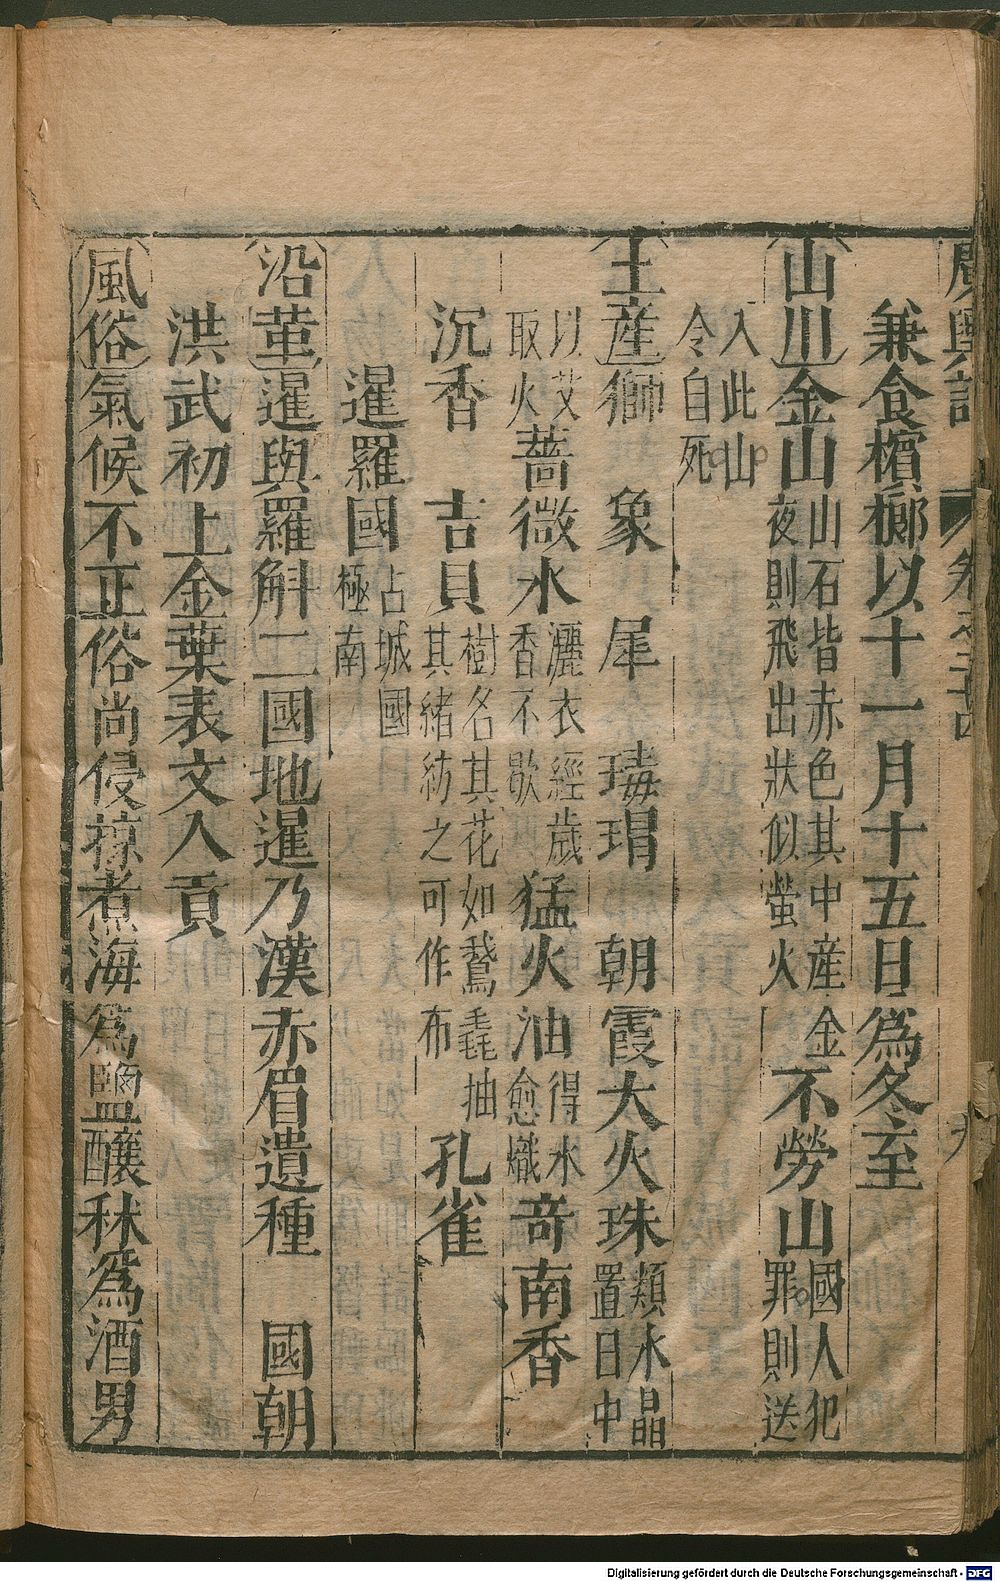 廣輿記 卷之二十四 九
兼食檳榔以十一月十五日爲冬至
山川金山山石皆赤色其中産金夜則飛出狀似螢火不勞山國人犯罪則送
入此山令自死
土産獅 象 犀 瑇瑁 朝霞大火珠類水晶置日中
以艾取火薔微水灑衣經歲香不歇猛火油得水愈熾奇南香
沉香 吉貝樹名其花如鵞毳抽其緒紡之可作布孔雀
暹羅國占城國極南
沿革暹與羅斛二國地暹乃漢赤眉遺種 國朝
洪武初上金葉表文入貢
風俗氣候不正俗尚侵掠煮海爲鹽釀秫爲酒男
Digitalisierung gefördert durch die Deutsche Forschungsgemeinschaft - DFG